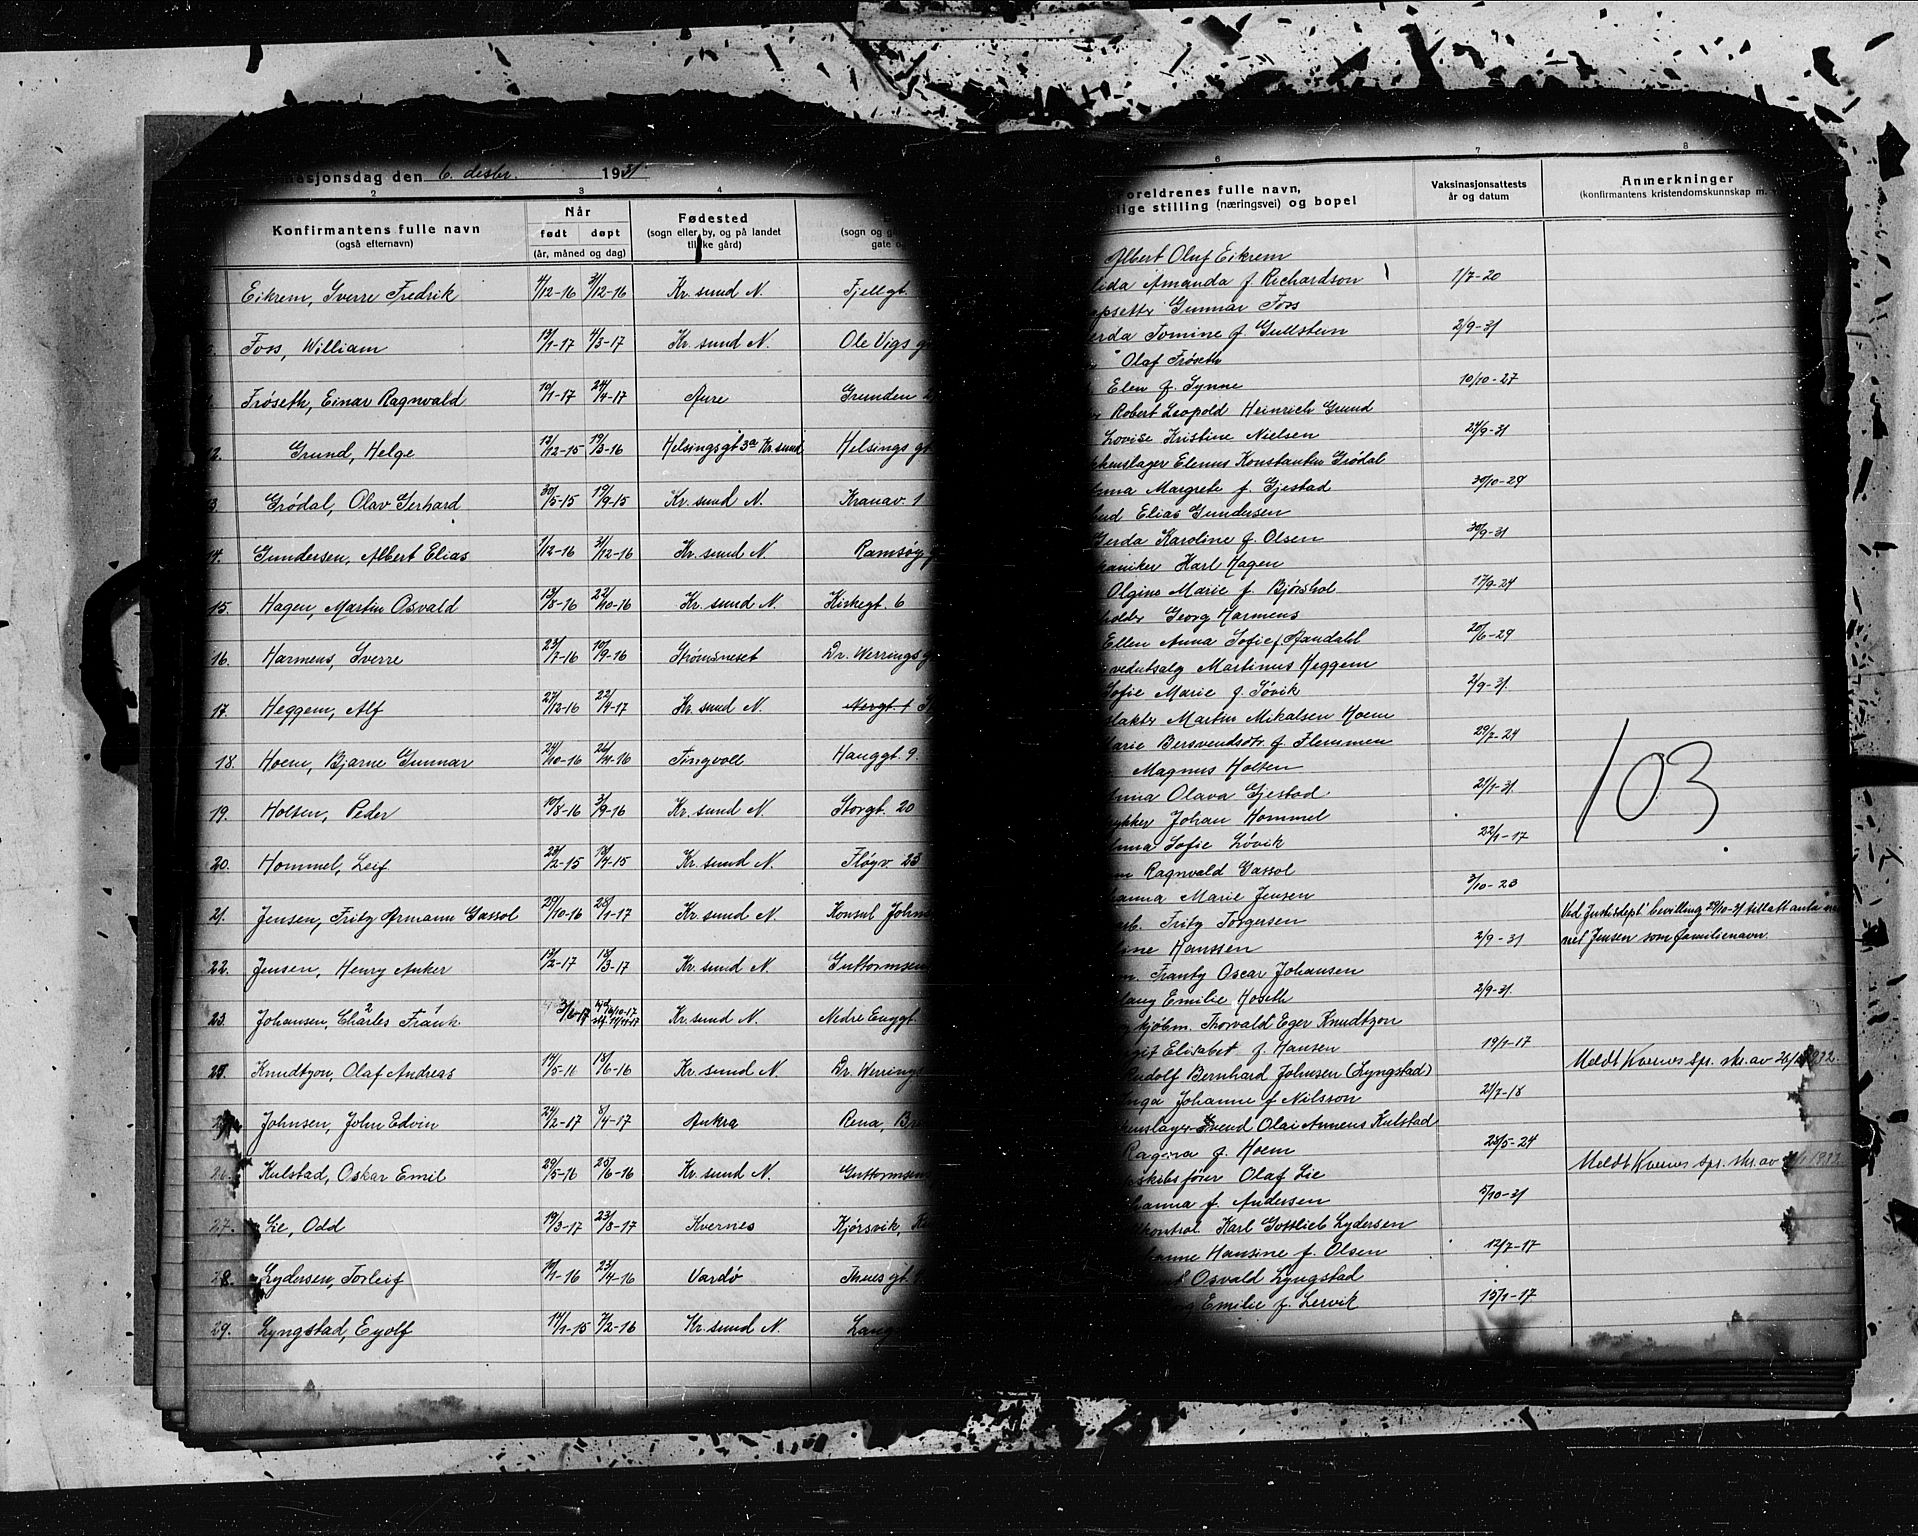 masjonsdag den 6. desbr. 1931
2 3 4
Konfirmantens fulle navn
(også efternavn)
Når
født døpt
(år, måned og dag)
Fødested
(sogn eller by, og på landet
tillike gård)
(sogn og
gate o
Eikrem, Sverre Fredrik 4/12-16 31/12-16 Kr. sund N. Fjellgt.
Foss, William 13/1-17 4/3-17 Kr. sund N. Ole Vigs
Frøseth, Einar Ragnvald 10/1-17 24/4-17 Aure Grunden
12. Grund, Helge 12/12-15 19/3-16 Helsingsgt 3a Kr. sund Helsings gt
3 Grødal, Olav Gerhard 30/5-15 19/9-15 Kr. sund N. Kranav. 1
14. Gundersen, Albert Elias 1/12-16 31/12-16 Kr. sund N. Ramsøy
15. Hagen, Martin Osvald 13/8-16 22/10-16 Kr. sund N. Kirkegt. 6
16. Harmens, Sverre 23/7-16 10/9-16 Strømsneset Dr. Werrings
17. Heggem, Alf 27/12-16 22/4-17 Kr. sund N. Norgt. 1
18. Hoem, Bjarne Gunnar 24/10-16 26/11-16 Tingvoll Hauggt. 9.
19. Holten, Peder 10/8-16 3/9-16 Kr. sund N. Storgt. 20
20. Hommel, Leif 23/2-15 18/4-15 Kr. sund N. Fløyv. 23
21. Jensen, Fritz Armann Gassol 29/10-16 28/1-17 Kr. sund N. Konsul Johns
22. Jensen, Henry Anker 13/2-17 18/3-17 Kr. sund N. Guttormsen
23. Johansen, Charles Frank 3/6-17 Kr. sund N. Nedre Enggt.
Knudtzon, Olaf Andreas 14/5-16 18/6-16 Kr. sund N. Dr. Werrings
Johnsen, John Edvin 24/2-17 8/4-17 Aukra Rena,
26. Kulstad, Oskar Emil 29/5-16 25/6-16 Kr. sund N. Guttormsen
27. Lie, Odd 19/3-17 23/8-17 Kvernes Kjørsvik,
28. Lydersen, Torleif 10/1-16 23/4-16 Vardø
29. Lyngstad, Eyolf 14/1-15 7/2-16 Kr. sund N. Lang
6 7 8
oreldrenes fulle navn,
lige stilling (næringsvei) og bopel
Vaksinasjonsattests
år og datum
Anmerkninger
(konfirmantens kristendomskunnskap m.
Albert Oluf Eikrem
Amanda f. Richardson 1/7-20
Gunnar Foss
Tomine f. Gullstein 2/9-31
Olaf Frøseth
Elen f. Synne 10/10-27
Robert Leopold Heinrich Grund
Lovise Kristine Nielsen 24/9-31
Elenus Konstantin Grødal
Margrete f. Gjestad 30/10-29
Elias Gundersen
Gerda Karoline f. Olsen 30/9-31
Karl Hagen
Olgine Marie f. Bjørshol 17/9-24
Georg Harmens
Ellen Anna Sofie f. Aandahl 20/6-29
vedutsalg Martinus Heggem
Sofie Marie f. Søvik 2/9-31.
Martin Mikalsen Hoem
Marie Bersvendsdtr. f. Flemmen 29/7-24
Magnus Holten
Olava Gjestad. 21/1-31.
Johan Hommel
Sofie Løvik 22/1-17
Ragnvald Gassol
Marie Jensen 3/10-23
103
Ved Justisdept' bevilling 29/10-31 tillatt anta nav
net Jensen som familienavn.
arb. Fritz Torgersen
Hanssen 2/9-31
Frantz Oscar Johansen
Emilie Hoseth 2/9-31.
kjøbm. Thorvald Eger Knudtzon
Elisabet f. Hansen 19/1-17
Meldt Kvernes spr. skr. av
Rudolf Bernhard Johnsen (Lyngstad)
Inga Johanne f. Nilsson 21/7-18
Svend Olai Annæus Kulstad
Ragna f. Hoem 23/5-24
Meldt Kvernes spr. skr. av
skibsfører Olaf Lie
f. Andersen 5/10-31
kontrol. Karl Gottlieb Lydersen
Hansine f. Olsen 12/7-17
Osvald Lyngstad
Emilie f. Lervik 15/1-17